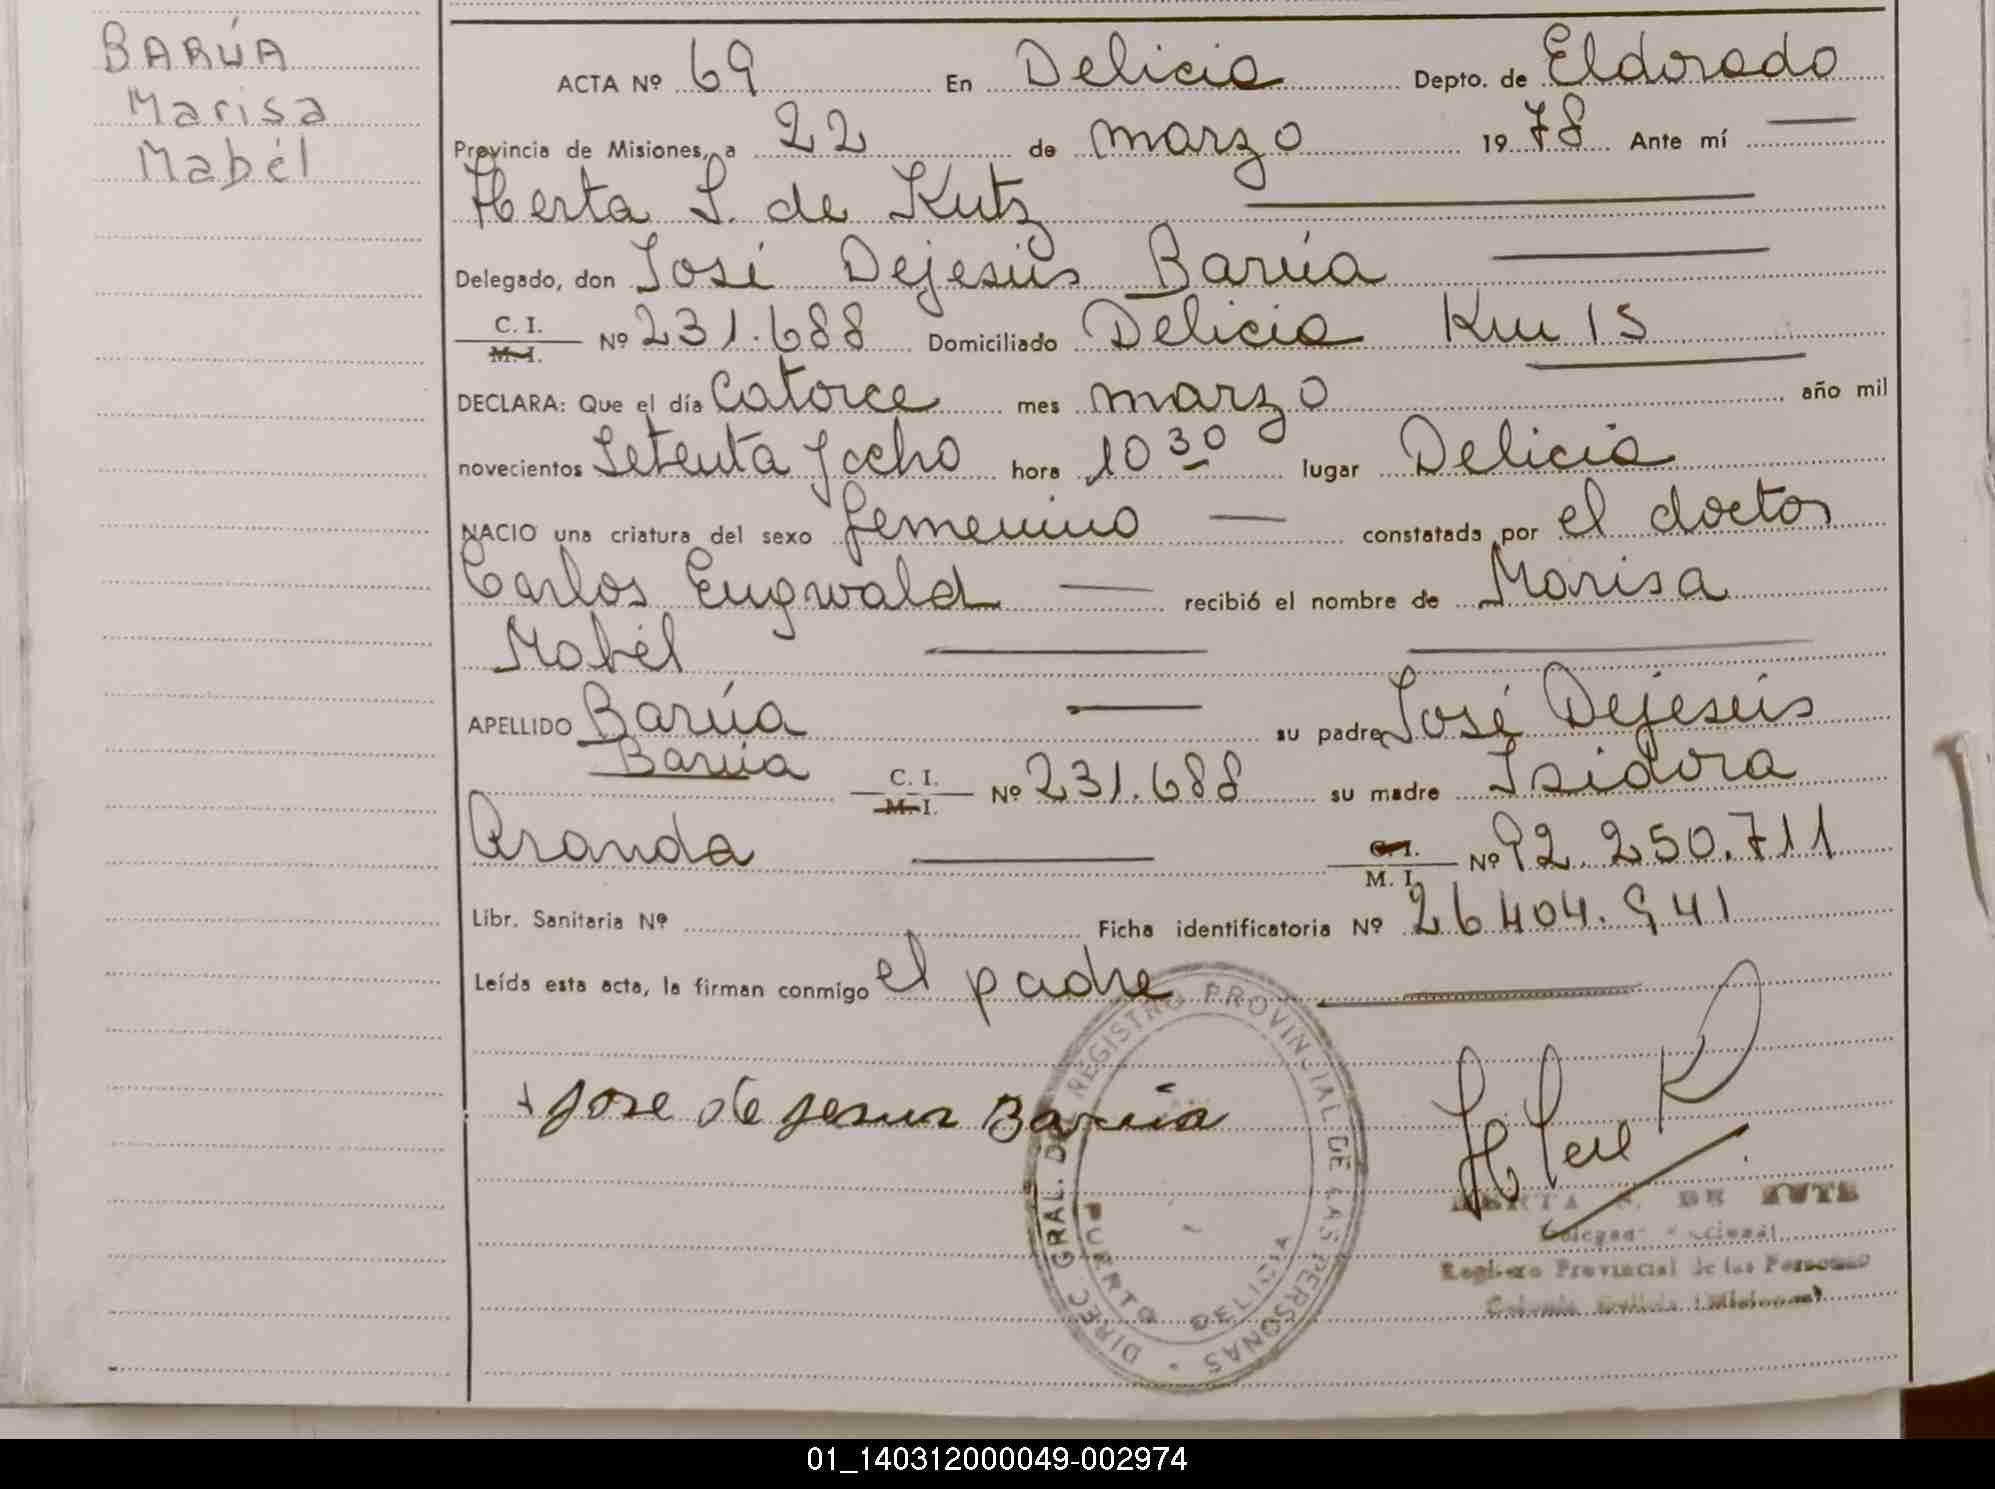 BARÚA
Marisa
Mabél
ACTA Nº 69 En Delicia Depto. de Eldorado
Provincia de Misiones, a 22 de marzo 1978 Ante mí
Herta S. de Kutz
Delegado, don José Dejesús Barúa
C. I.
M. I. Nº 231.688 Domiciliado Delicia Km 15
DECLARA: Que el día Catorce mes marzo año mil
novecientos Setenta y ocho hora 10 30 lugar Delicia
NACIO una criatura del sexo femenino constatada por el doctor
Carlos Eugwald recibió el nombre de Marisa
Mabél
APELLIDO Barúa su padre José Dejesús
Barúa C. I.
M. I. Nº 231.688 su madre Isidora
Aranda C. I.
M. I. Nº 92.250.711
Libr. Sanitaria Nº Ficha identificatoria Nº 26404.941
Leída esta acta, la firman conmigo el padre
Jose de Jesus Barúa
DIREC GRAL. DEL REGISTRO PROVINCIAL DE LAS PERSONAS
PUERTO DELICIA
HERTA S. DE KUTZ
Registro Provincial de las Personas
01_140312000049-002974